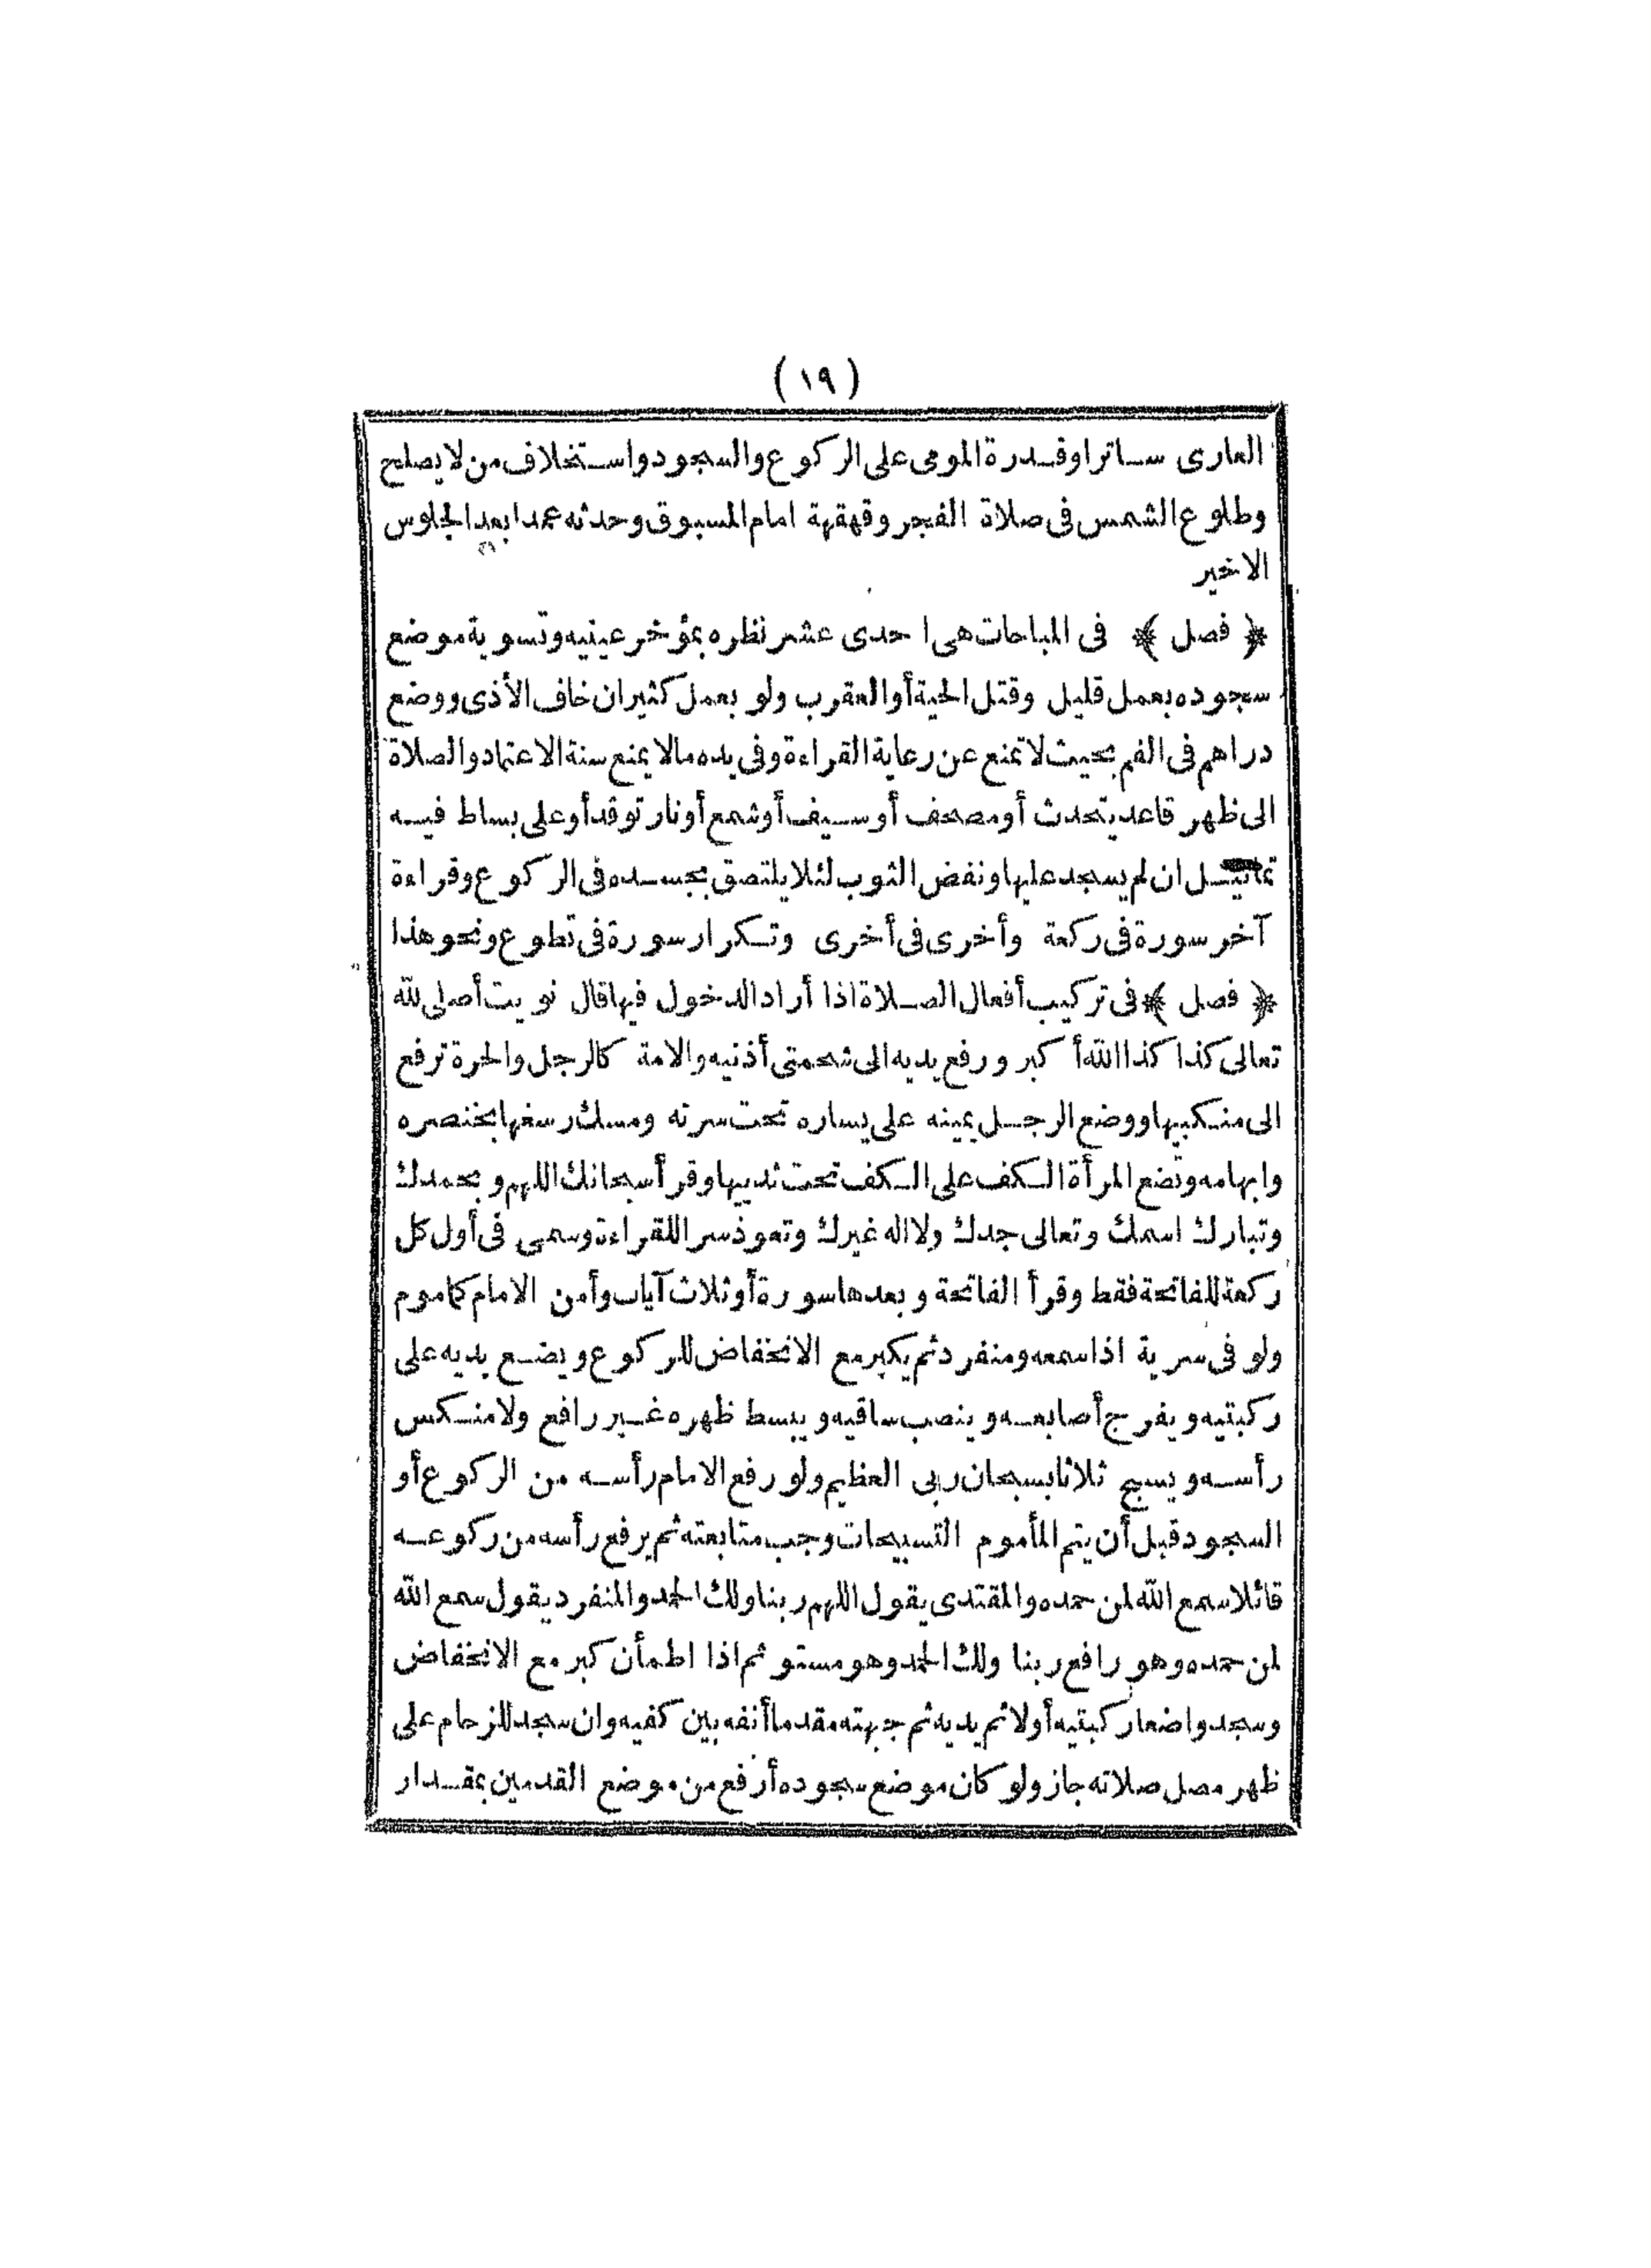 (١٩)
العارى ساترا وقدرة المومى على الركوع والسجود واستخلاف من لا يصلح
وطلوع الشمس فى صلاة الفجر وقهقهة امام المسبوق وحدثه عمدا بعد الجلوس
الاخير
﴿ فصل ﴾ فى المباحات هى احدى عشر نظره بمؤخر عينيه وتسوية موضع
سجوده بعمل قليل وقتل الحية أو العقرب ولو بعمل كثير ان خاف الأذى ووضع
دراهم فى الفم بحيث لا تمنع عن رعاية القراءة وفى يده مالا يمنع سنة الاعتماد والصلاة
الى ظهر قاعد يتحدث أو مصحف أو سيف أو شمع أو نار توقد أو على بساط فيه
تماثيل ان لم يسجد عليها ونفض الثوب لئلا يلتصق بجسده فى الركوع وقراءة
آخر سورة فى ركعة وأخرى فى أخرى وتكرار سورة فى تطوع ونحو هذا
﴿ فصل ﴾ فى تركيب أفعال الصلاة اذا أراد الدخول فيها قال نويت أصلى لله
تعالى كذا كذا الله أكبر ورفع يديه الى شحمتى أذنيه والامة كالرجل والحرة ترفع
الى منكبيها ووضع الرجل يمينه على يساره تحت سرته ومسك رسغها بخنصره
وابهامه وتضع المرأة الكف على الكف تحت ثدييها وقرأ سبحانك اللهم وبحمدك
وتبارك اسمك وتعالى جدك ولا اله غيرك وتعوذ سرا للقراءة وسمى فى أول كل
ركعة للفاتحة فقط وقرأ الفاتحة وبعدها سورة أو ثلاث آيات وأمن الامام كماموم
ولو فى سرية اذا سمعه ومنفرد ثم يكبر مع الانخفاض للركوع ويضع يديه على
ركبتيه ويفرج أصابعه وينصب ساقيه ويبسط ظهره غير رافع ولا منكس
رأسه ويسبح ثلاثا بسبحان ربى العظيم ولو رفع الامام رأسه من الركوع أو
السجود قبل أن يتم المأموم التسبيحات وجب متابعته ثم يرفع رأسه من ركوعه
قائلا سمع الله لمن حمده والمقتدى يقول اللهم ربنا ولك الحمد والمنفرد يقول سمع الله
لمن حمده وهو رافع ربنا ولك الحمد وهو مستو ثم اذا اطمأن كبر مع الانخفاض
وسجد واضعا ركبتيه أولا ثم يديه ثم جبهته مقدما أنفه بين كفيه وان سجد للزحام على
ظهر مصل صلاته جاز ولو كان موضع سجوده أرفع من موضع القدمين بمقدار